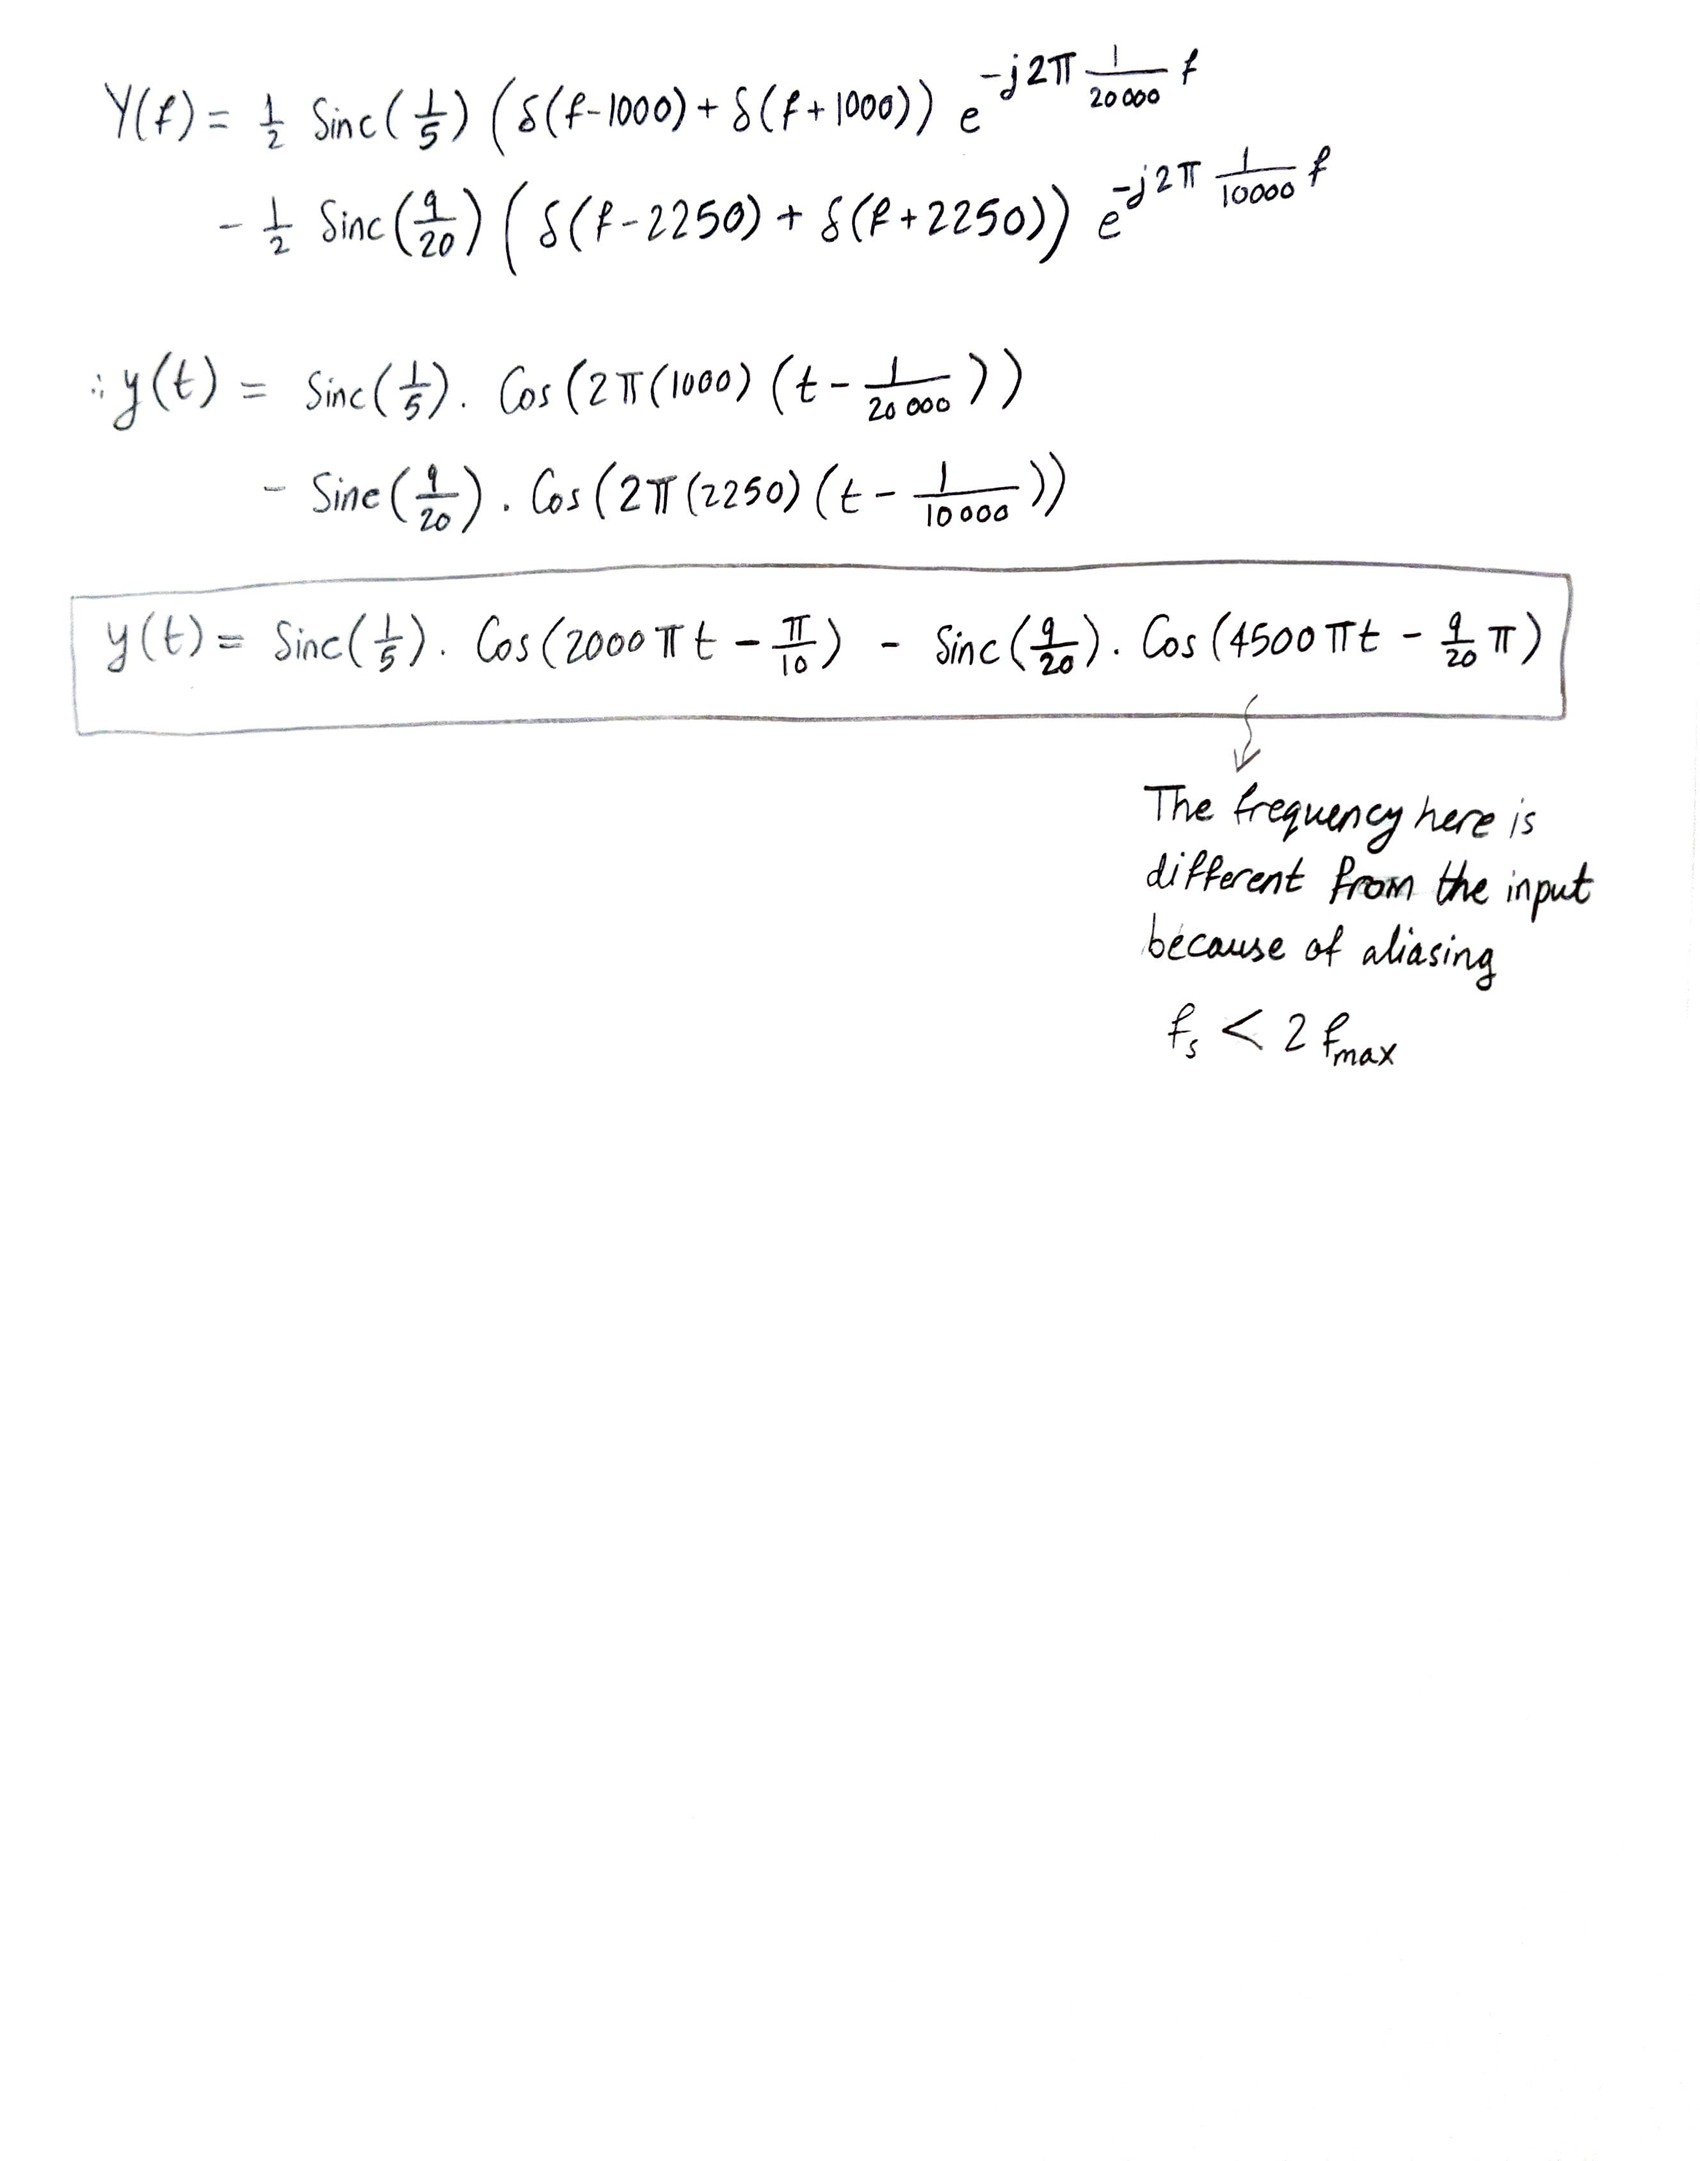 Y(f) = 1/2 Sinc(1/5) (δ(f-1000) + δ(f+1000)) e^(-j2π 1/20000 f)
- 1/2 Sinc(9/20) (δ(f-2250) + δ(f+2250)) e^(-j2π 1/10000 f)
∴ y(t) = Sinc(1/5) . Cos(2π(1000) (t - 1/20000))
- Sinc(9/20) . Cos(2π(2250) (t - 1/10000))
y(t) = Sinc(1/5) . Cos(2000πt - π/10) - Sinc(9/20) . Cos(4500πt - 9/20 π)
The frequency here is
different from the input
because of aliasing
fs < 2 fmax